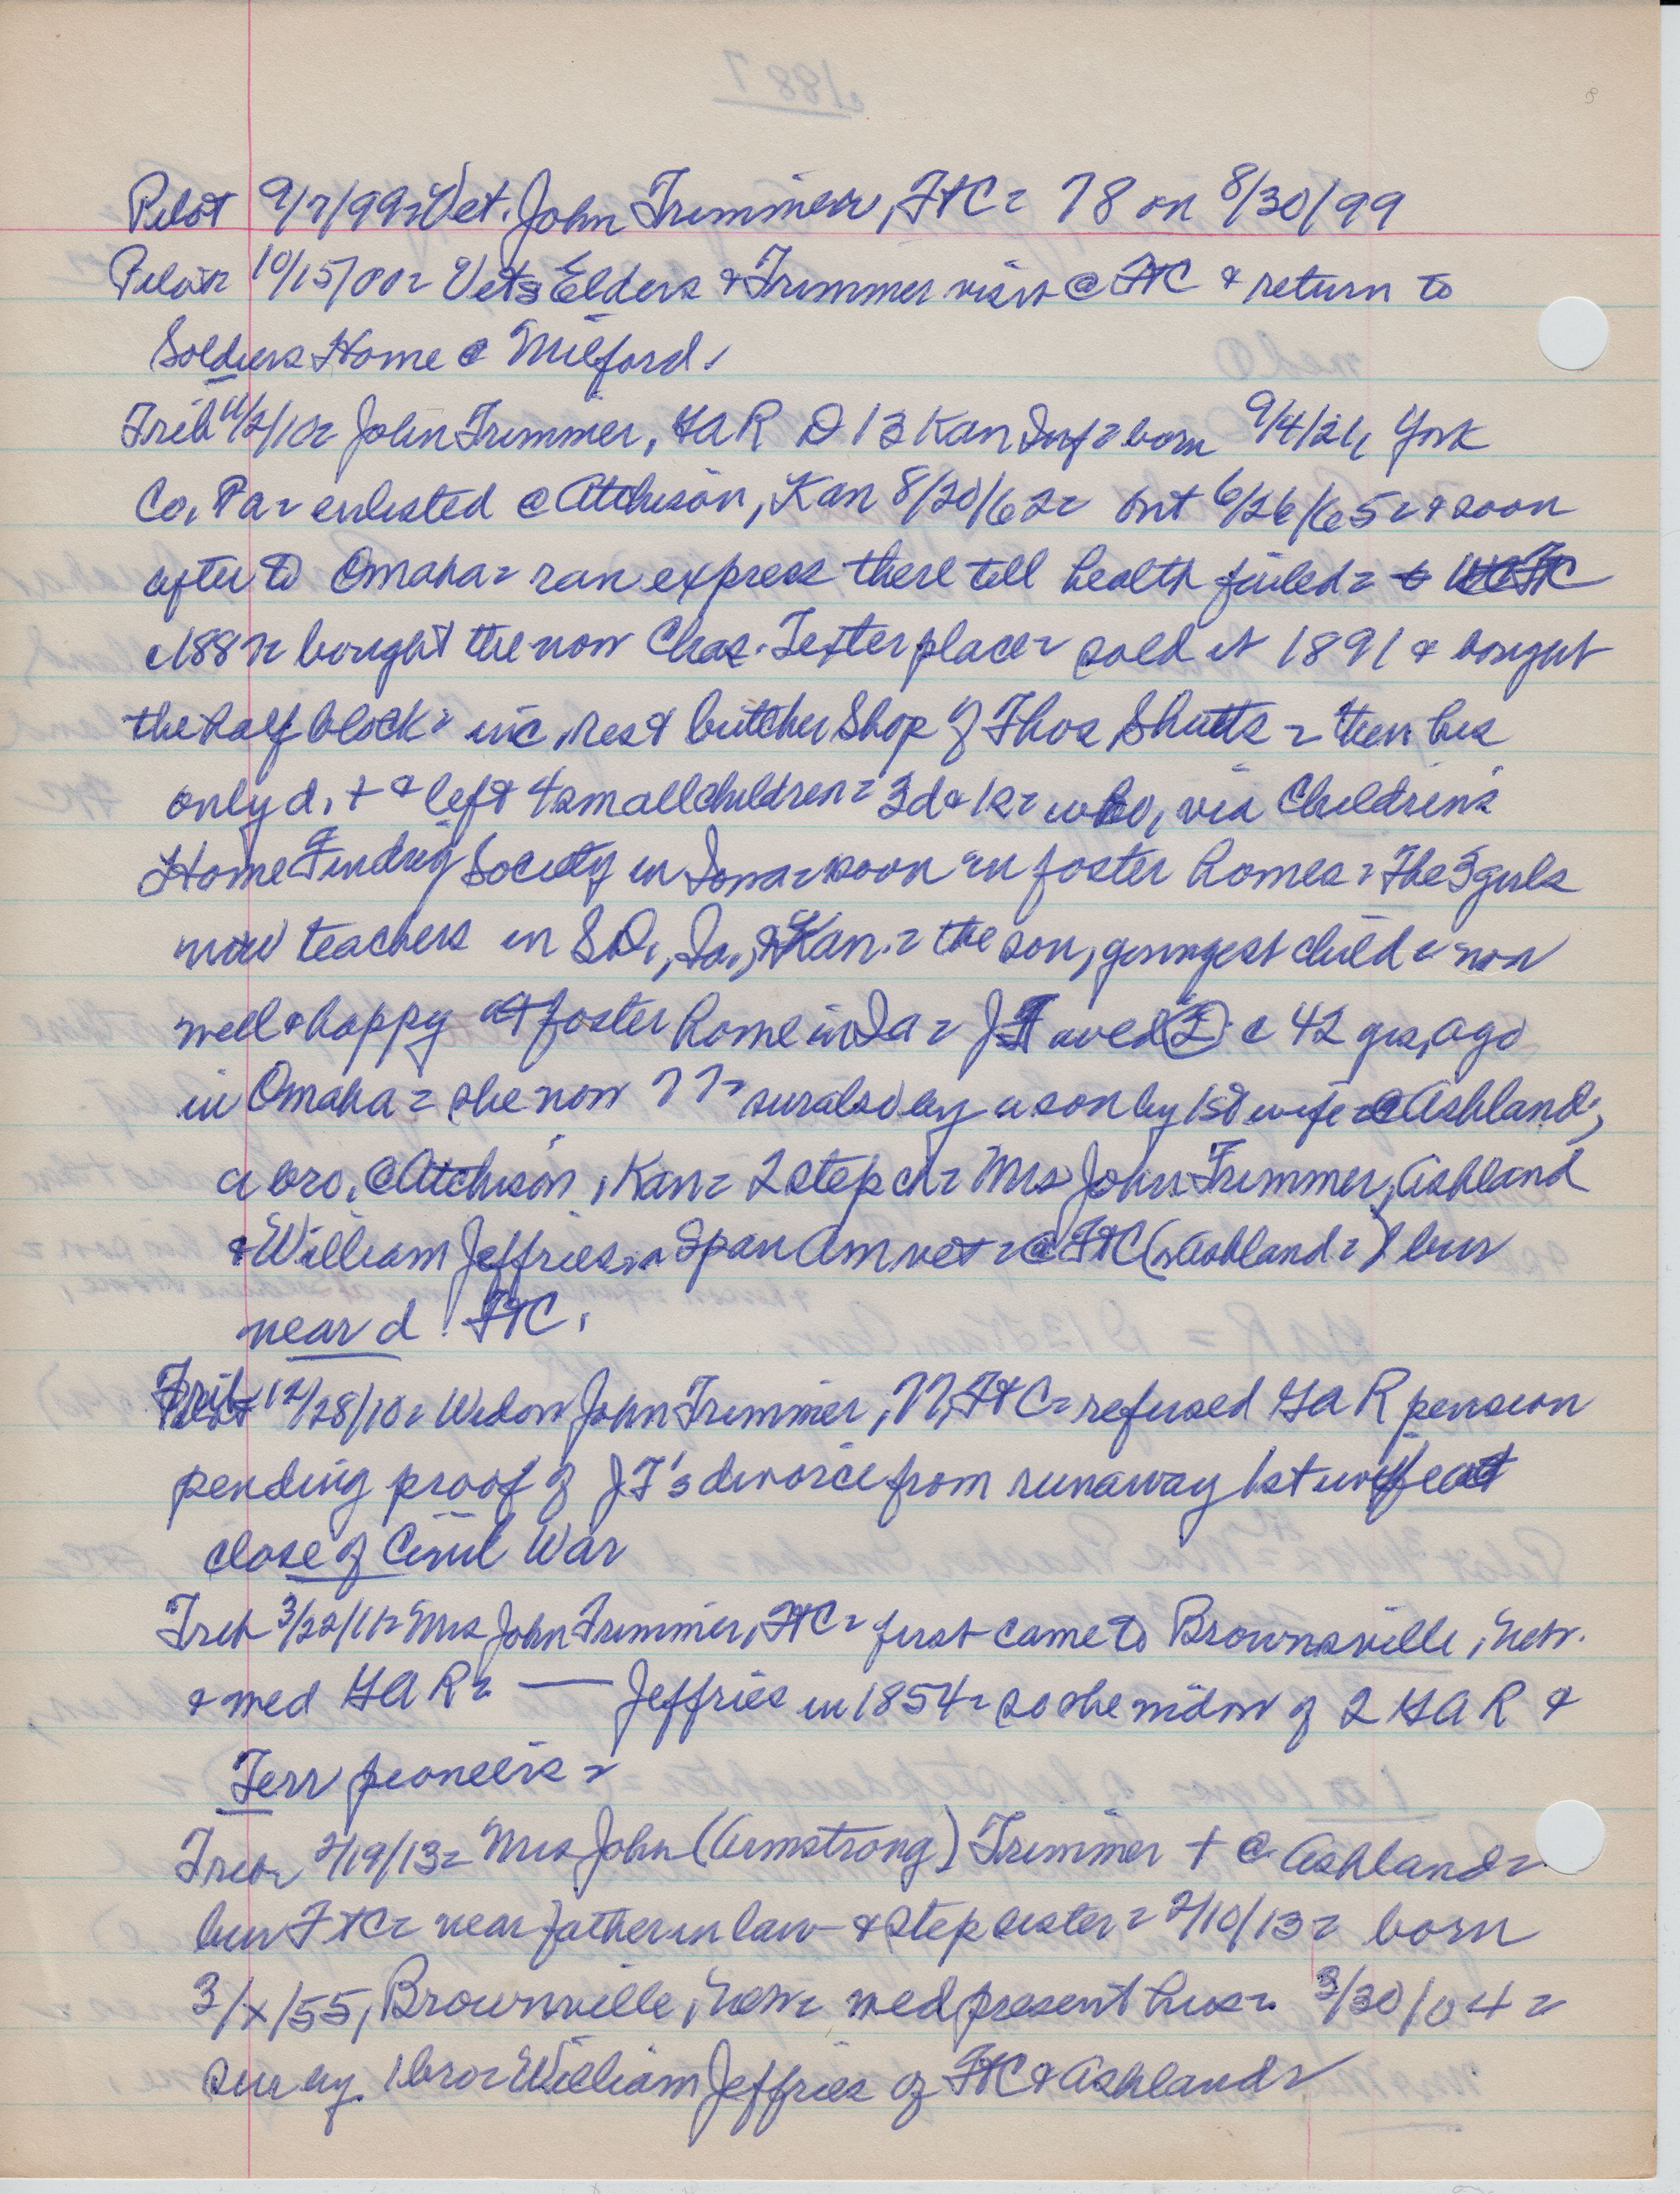 Pilot 9/7/99= Vet. John Trimmer, FtC = 78 on 8/30/99
Pilot 10/15/00= Vets Elders & Trimmer visit @ FtC & return to
Soldiers Home @ Milford.
Trib 11/2/10= John Trimmer, GAR D 13 Kan Inf = born 9/4/21, York
Co, Pa = enlisted @ Atchison, Kan 8/20/62= Out 6/26/65= & soon
after to Omaha = ran express there till health failed = to FtC
c1887= bought the now Chas. Teter place = sold it 1891 & bought
the half block = inc, res & butcher Shop of Thos Shutts = then his
only d, + & left 4 small children = 3d & 1s = who, via Children's
Home Finding Society in Iowa = soon in foster homes = The 3 girls
now teachers in SD, Ia, & Kan. = the son, youngest child = now
well & happy at foster home in Ia = JT wed (2) c 42 yrs, ago
in Omaha = she now 77= sur also by a son by 1st wife = @ Ashland;
a bro, @ Atchison, Kan = 2 step ch = Mrs John Trimmer, Ashland
& William Jeffries = a Span Am vet = @ FtC (n Ashland =) bur
near d FtC.
Trib 12/28/10= Widow John Trimmer, 77, FtC = refused GAR pension
pending proof of JT's divorce from runaway 1st wife at
close of Civil War
Trib 3/22/11= Mrs John Trimmer, FtC = first came to Brownsville, Nebr.
& wed GAR = — Jeffries in 1854= so she widow of 2 GAR &
Terr pioneers =
Trib 2/19/13= Mrs John (Armstrong) Trimmer + @ Ashland =
bur FtC = near father in law & step sister = 2/10/13= born
3/x/55, Brownville, Nebr = wed present hus = 3/30/04=
sur by. 1 bro = William Jeffries of FtC & Ashland =